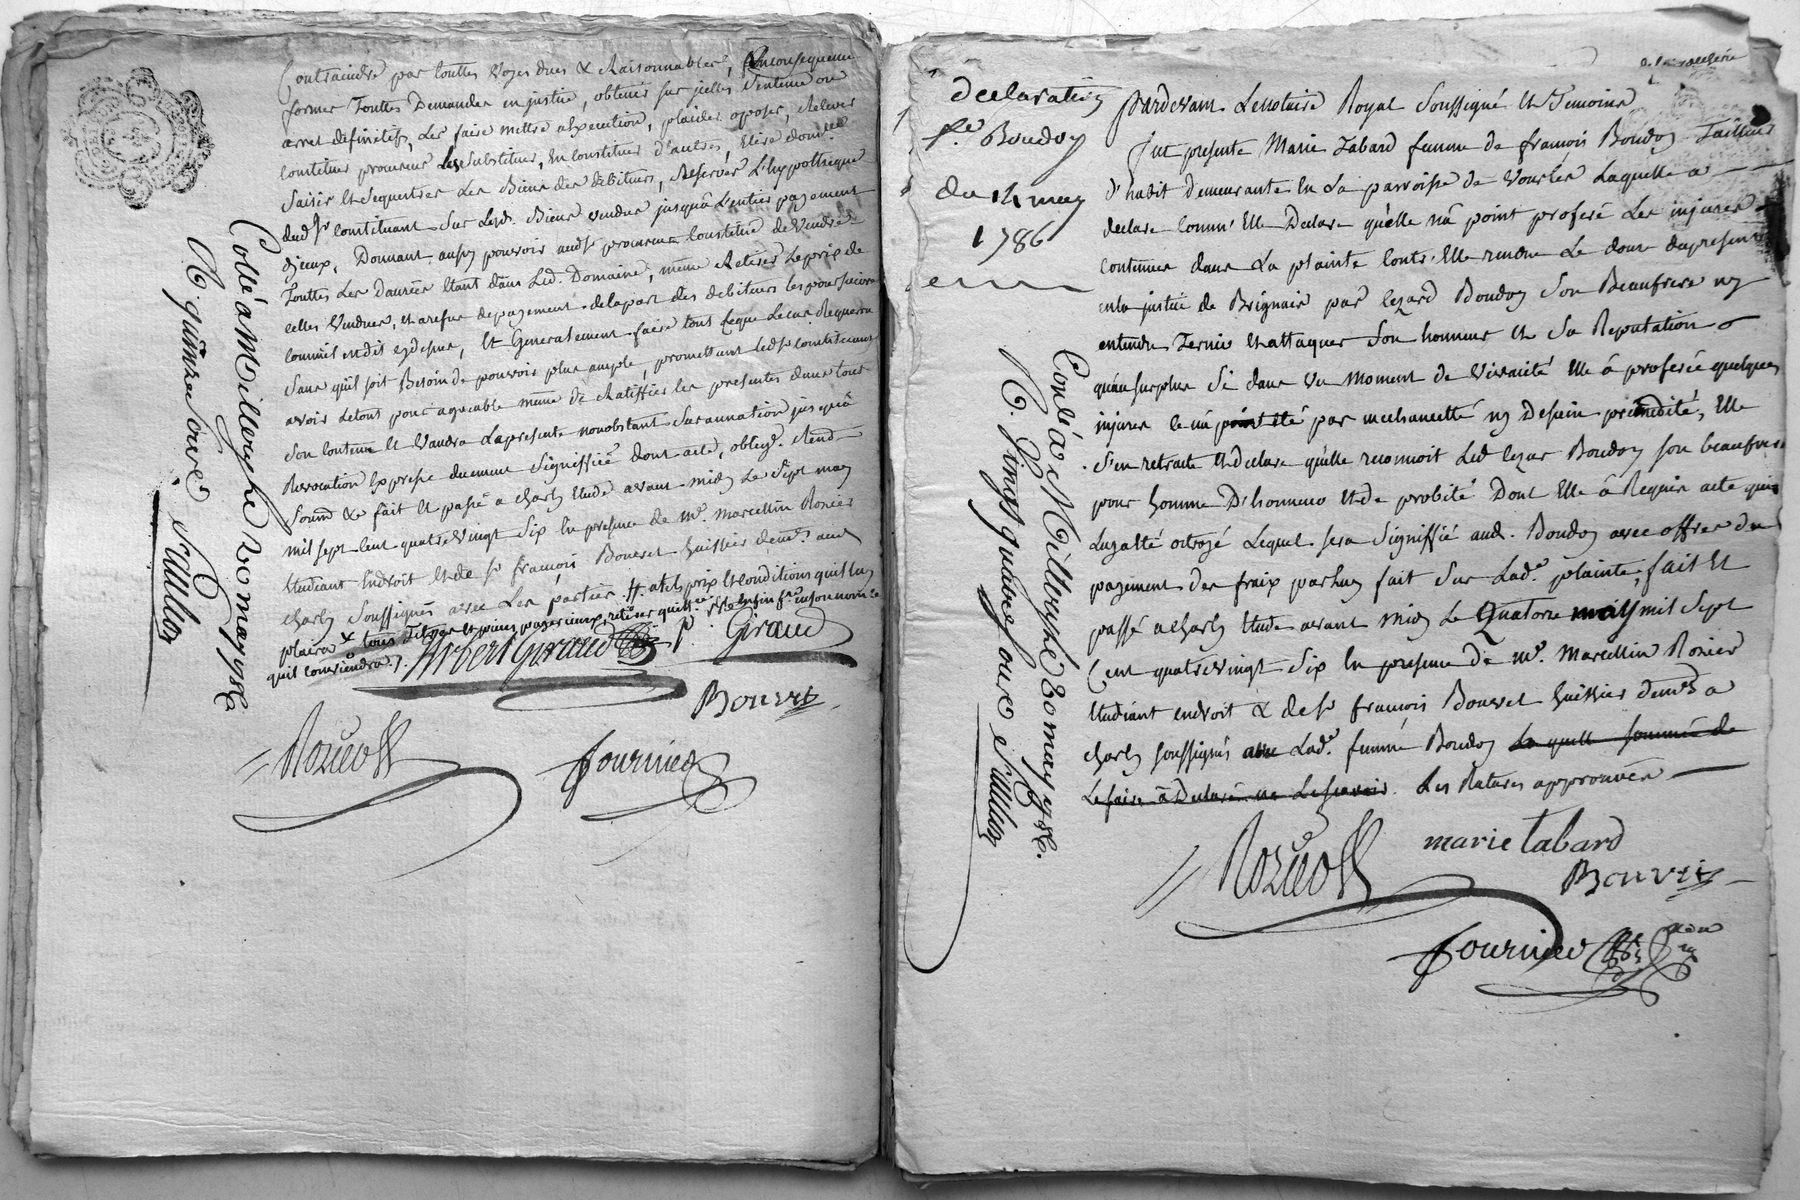 Contraindre par touttes voyes dues & Raisonnables, En consequence
former Touttes Demandes en justice, obtenir sur icelles Sentence ou
arret definitifs, Les faire mettre a Execution, plaider oposer, Relever
constituer procureur les substituer, En constituer d'autres, Elire domicile
Saisir et sequestrer Les Biens des debiteurs, Reserver L'hypotheque
dud. Sr constituant sur Lesd. Biens vendus jusqu'à L'entier payement
d'iceux, Donnant aussy pouvoir aud Sr procureur Constitué de Vendre
Touttes Les Danrées étant dans Led. Domaine, même Retirer Le prix de
celles Vendues, et a refus de payement de la part des debiteurs les poursuivre
comme il est dit cy dessus, Et Generalement faire tout ce que Le cas Requerra
Sans qu'il soit Besoin de pouvoir plus ample, promettant led Sr constituant
avoir Le tout pour agreable même de Ratiffier les presentes dans tout
Son contenu Et Vaudra La presente nonobstant Surannation jusqu'à
Revocation Expresse duement Signiffiée dont acte, oblig. Rend.
Soum &c fait Et passé a charly Etude avant midy Le Sept may
mil sept Cent quatre vingt Six En presence de Mr. Marcellin Rozier
Etudiant En droit Et de Sr françois Bouvret huissier demts aud
charly Soussignés avec Les parties # at els prix Et conditions quil luy
plaira
qu'il conviendra
Giraud
Bouvret
Rozier
fournier
Collé a Millery le 20 may 1786
R. quinze sous
declaration
fe. Boudoy
du 14 may
1786
pardevant Le notaire Royal Soussigné Et Temoins
fut presente Marie Tabard femme de françois Boudoy Tailleur
d'habit demeurante En La parroisse de Vourles Laquelle a
declaré comm' Elle Declare qu'elle n'a point proferé Les injures
contenues dans La plainte contr'Elle rendue Le douze du present
en la justice de Brignais par Cezard Boudoy Son Beaufrere ny
entendu Ternir Et attaquer Son honneur Et Sa Reputation
qu'au surplus Si dans un Moment de Vivacité Elle a proferé quelques
injures ce n'a point été par mechanceté ny Dessein premedité, Elle
S'en retracte Et declare qu'elle reconnoit Led Cezar Boudoy son beaufrere
pour homme D'honneur Et de probité Dont Elle a Requis acte qui
Luy a été octroyé Lequel sera Signiffié aud. Boudoy avec offres du
payement des fraix par Luy fait Sur Lade. plainte, fait Et
passé a charly Etude avant midy Le Quatorze may mil Sept
Cent quatre vingt Six En presence de Mr. Marcellin Rozier
Etudiant en droit & de Sr françois Bouvret huissier demts a
charly soussignés avec Lade. femme Boudoy La quelle sommée de
Le faire a Declaré ne Le scavoir. Les Ratures approuvées
marie tabard
Rozier
Bouvret
fournier
Conlé a Millery le 20 may 1786.
R. vingt quatre sous